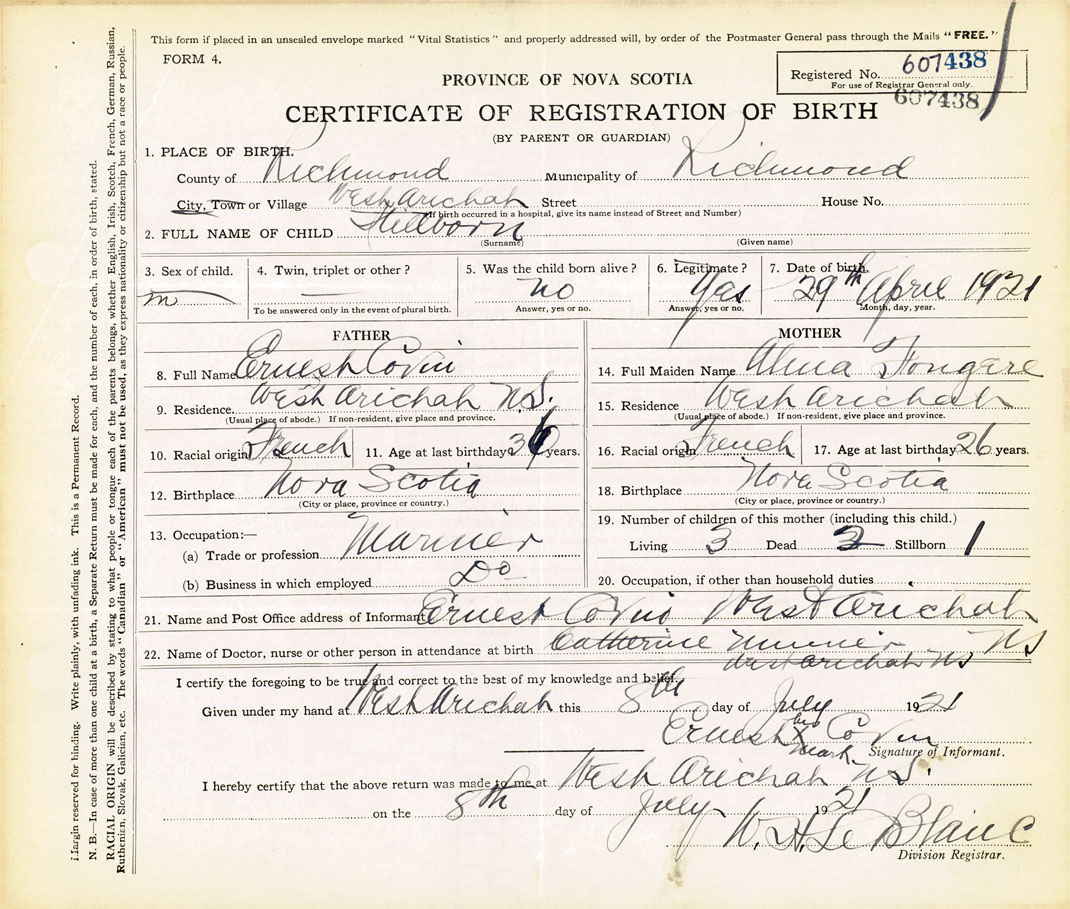 This form if placed in an unsealed envelope marked "Vital Statistics" and properly addressed will, by order of the Postmaster General pass through the Mails "FREE."
FORM 4.
PROVINCE OF NOVA SCOTIA
Registered No. 607438
For use of Registrar General only.
607438
CERTIFICATE OF REGISTRATION OF BIRTH
(BY PARENT OR GUARDIAN)
1. PLACE OF BIRTH.
County of Richmond Municipality of Richmond
City, Town or Village West Arichat Street House No.
(If birth occurred in a hospital, give its name instead of Street and Number)
2. FULL NAME OF CHILD Stillborn
(Surname) (Given name)
3. Sex of child. 4. Twin, triplet or other? 5. Was the child born alive? 6. Legitimate? 7. Date of birth.
m — no Yas 29th April 1921
To be answered only in the event of plural birth. Answer, yes or no. Answer, yes or no. Month, day, year.
FATHER
8. Full Name Ernest Covin
9. Residence West Arichat N.S.
(Usual place of abode.) If non-resident, give place and province.
10. Racial origin French 11. Age at last birthday years.
12. Birthplace Nova Scotia
(City or place, province or country.)
13. Occupation:—
(a) Trade or profession Marinier
(b) Business in which employed Do
MOTHER
14. Full Maiden Name Alma Fongere
15. Residence West Arichat
(Usual place of abode.) If non-resident, give place and province.
16. Racial origin French 17. Age at last birthday 26 years.
18. Birthplace Nova Scotia
(City or place, province or country.)
19. Number of children of this mother (including this child.)
Living 3 Dead 2 Stillborn 1
20. Occupation, if other than household duties
21. Name and Post Office address of Informant Ernest Covin West Arichat
22. Name of Doctor, nurse or other person in attendance at birth Catherine NS
West Arichat NS
I certify the foregoing to be true and correct to the best of my knowledge and belief.
Given under my hand at West Arichat this 8th day of July 1921
Ernest his X mark Covin
Signature of Informant.
I hereby certify that the above return was made to me at West Arichat N.S.
on the 8th day of July 1921
W. H. Le Blanc
Division Registrar.
Margin reserved for binding. Write plainly, with unfading ink. This is a Permanent Record.
N. B.—In case of more than one child at a birth, a Separate Return must be made for each, and the number of each, in order of birth, stated.
RACIAL ORIGIN will be described by stating to what people or tongue each of the parents belongs, whether English, Irish, Scotch, French, German, Russian,
Ruthenian, Slovak, Galician, etc. The words "Canadian" or "American" must not be used, as they express nationality or citizenship but not a race or people.